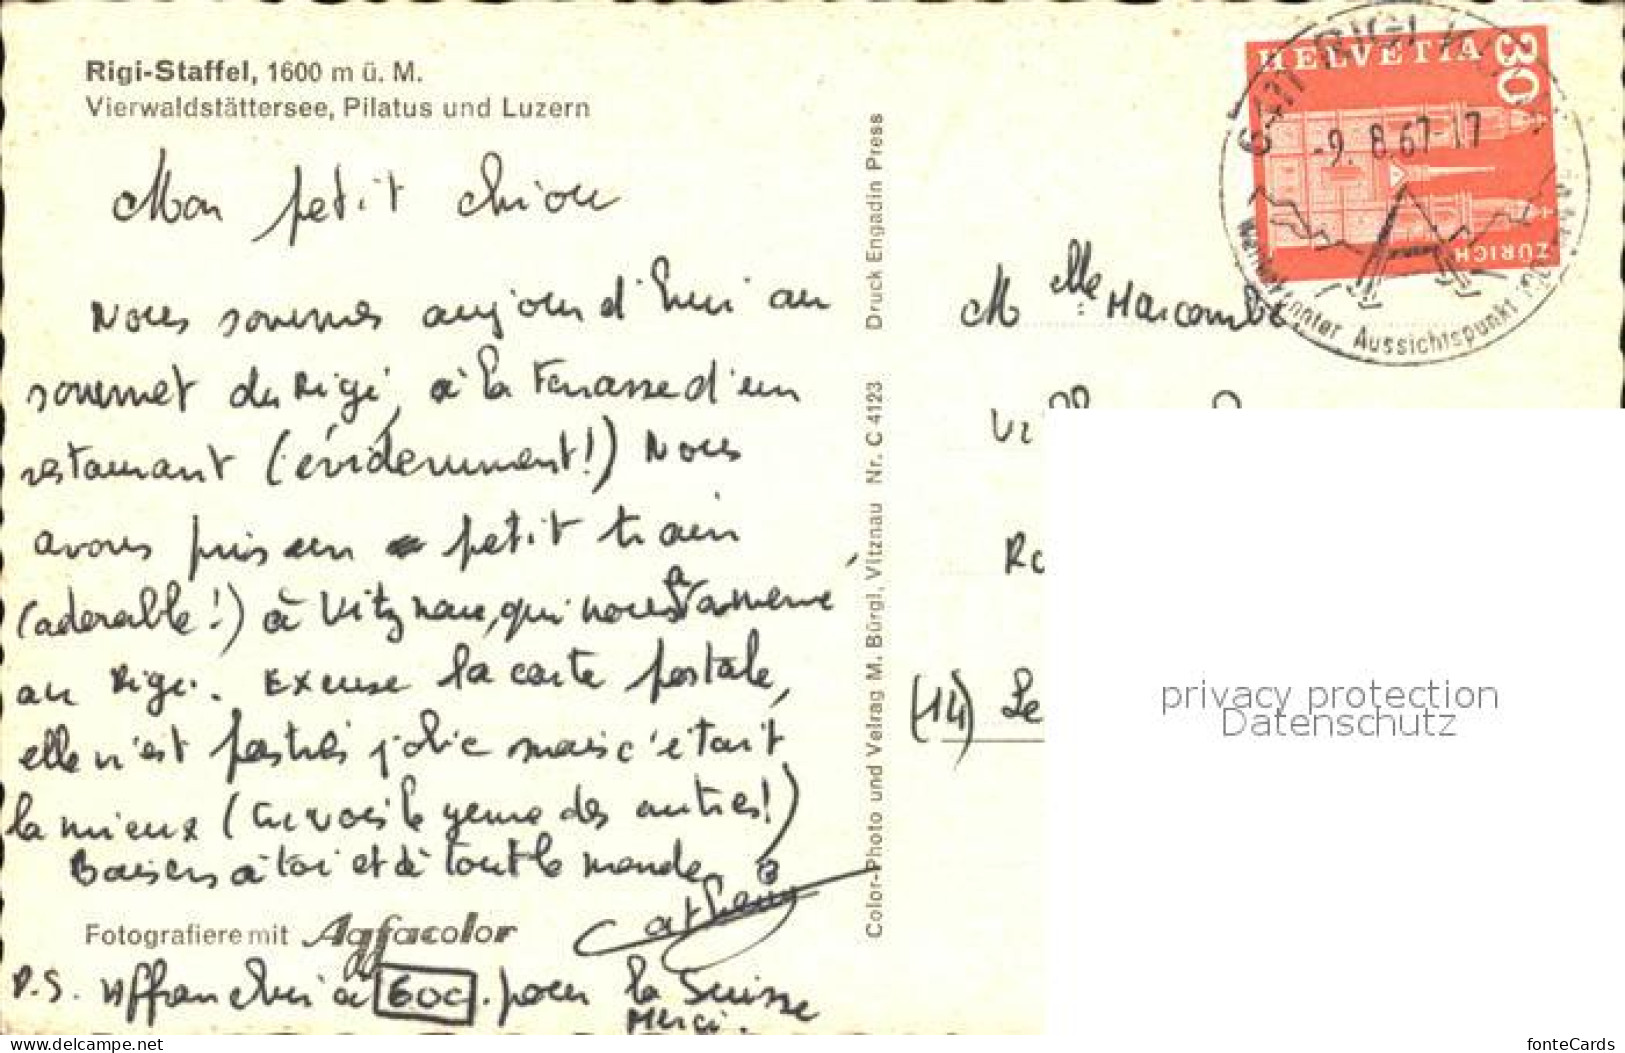 Rigi-Staffel, 1600 m ü. M.
Vierwaldstättersee, Pilatus und Luzern
Mon petit chiou
Nous sommes aujourd'hui au
sommet du Rigi, à la terrasse d'un
restaurant (évidemment!) Nous
avons pris un petit train
(adorable!) à Vitznau, qui nous a amené
au Rigi. Excuse la carte postale,
elle n'est pas très jolie mais c'était
la mieux (tu vois le genre des autres!)
Baisers à toi et à tout le monde
Fotografiere mit Agfacolor
P.S. Affranchi à 60c. pour la Suisse
Merci.
Color-Photo und Velrag M. Bürgi, Vitznau Nr. C 4123 Druck Engadin Press
HELVETIA 30
ZÜRICH
6411 RIGI
-9. 8.67-17
Aussichtspunkt
Melle Marcombe
Vi
Ro
(14) Le
privacy protection
Datenschutz
https://www.ansichtskarten-center.de
fonteCards